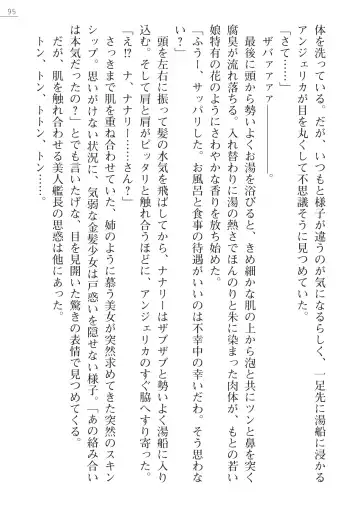 95
体を洗っている。だが、いつもと様子が違うのが気になるらしく、一足先に湯船に浸かる
アンジェリカが目を丸くして不思議そうに見つめていた。
「さて……」
ザバァァァァ――。
最後に頭から勢いよくお湯を浴びると、きめ細かな肌の上から泡と共にツンと鼻を突く
腐臭が流れ落ちる。入れ替わりに湯の熱さでほんのりと朱に染まった肉体が、もとの若い
娘特有の花のようにさわやかな香りを放ち始めた。
「ふうー、サッパリした。お風呂と食事の待遇がいいのは不幸中の幸いだわ。そう思わな
い？」
頭を左右に振って髪の水気を飛ばしてから、ナナリーはザブザブと勢いよく湯船に入り
込む。そして肩と肩がピッタリと触れ合うほどに、アンジェリカのすぐ脇へすり寄った。
「え!?　ナ、ナナリー……さん？」
さっきまで肌を重ね合わせていた、姉のように慕う美女が突然求めてきた突然のスキン
シップ。思いがけない状況に、気弱な金髪少女は戸惑いを隠せない様子。「あの絡み合い
は本気だったの!?」とでも言いたげな、目を見開いた驚きの表情で見つめてくる。
だが、肌を触れ合わせる美人艦長の思惑は他にあった。
トン、トントン、トン……。